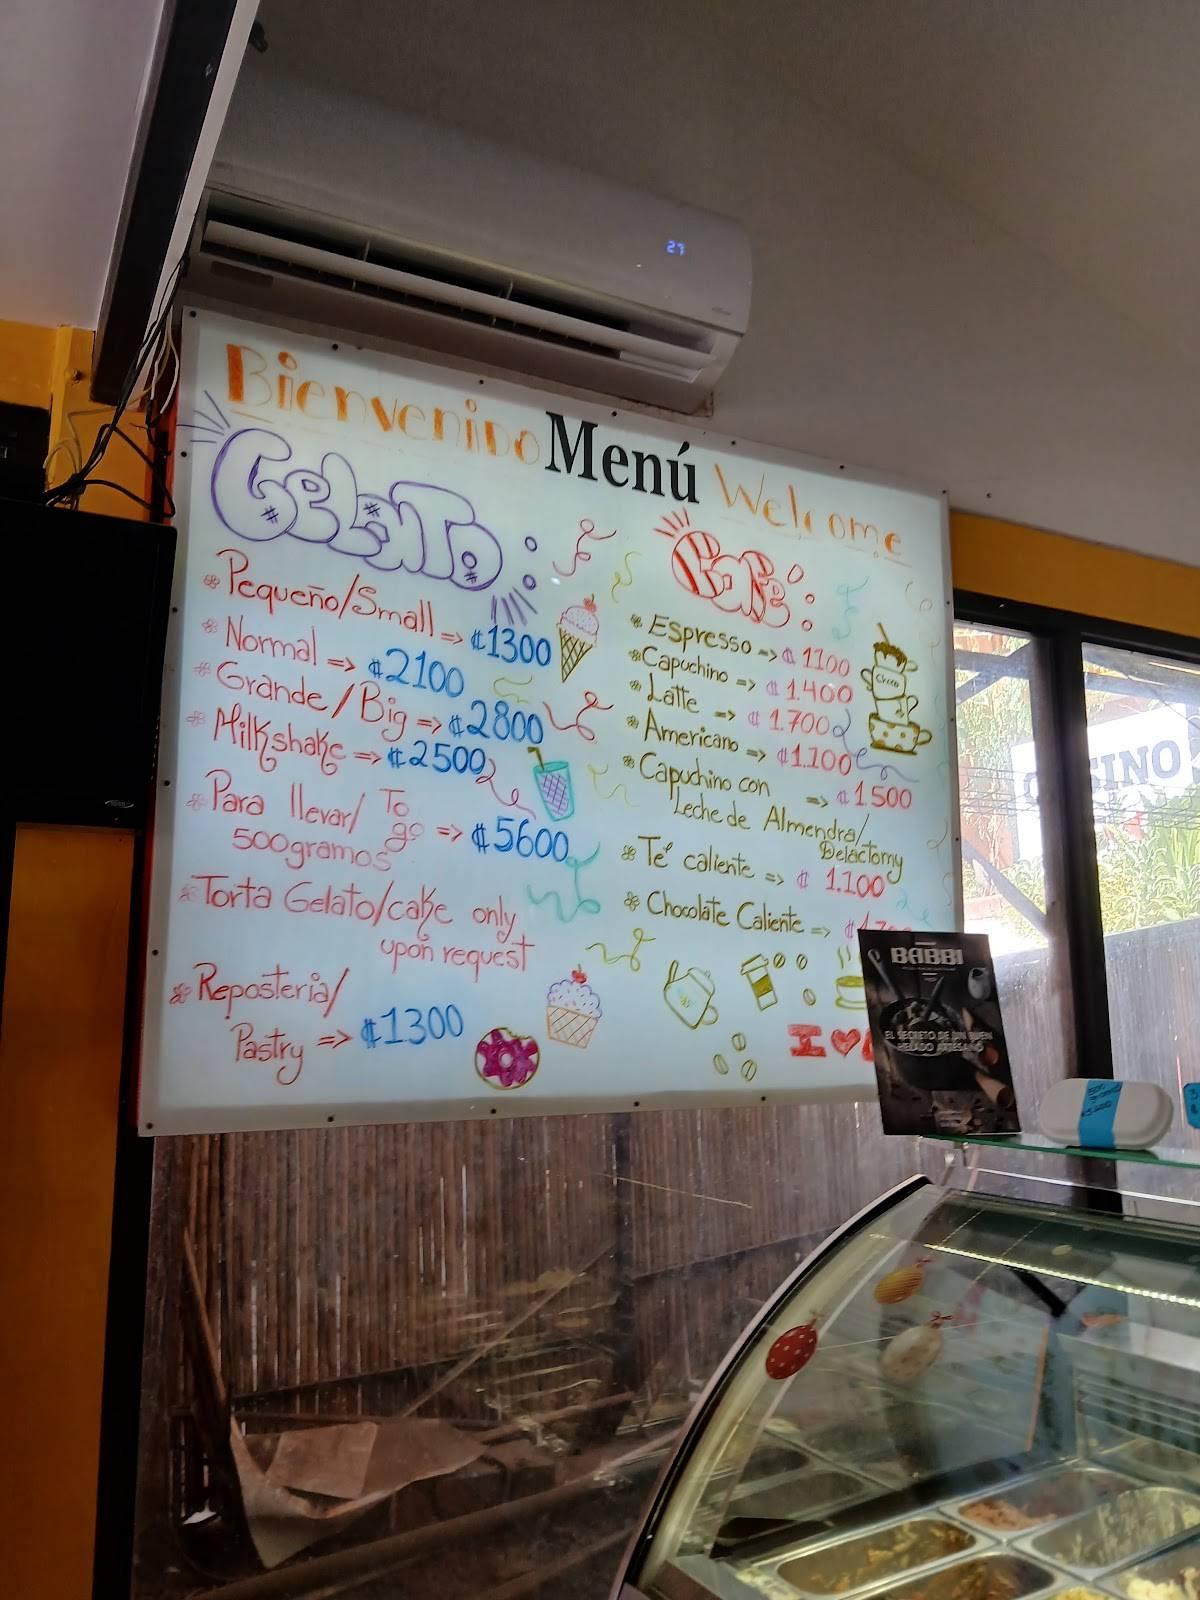 27
Bienvenido Menú Welcome
Gelato:
Pequeño/Small => ₡1300
Normal => ₡2100
Grande/Big => ₡2800
Milkshake => ₡2500
Para llevar/ To go => ₡5600
500gramos
Torta Gelato/cake only
upon request
Reposteria/
Pastry => ₡1300
Café:
Espresso => ₡ 1100
Capuchino => ₡ 1.400
Latte => ₡ 1.700
Americano => ₡1.100
Capuchino con => ₡1.500
Leche de Almendra/
Delactomy
Té caliente => ₡ 1.100
Chocolate Caliente => ₡
Choco
I ♥
BABBI
EL SECRETO DE UN BUEN
HELADO ARTESANO